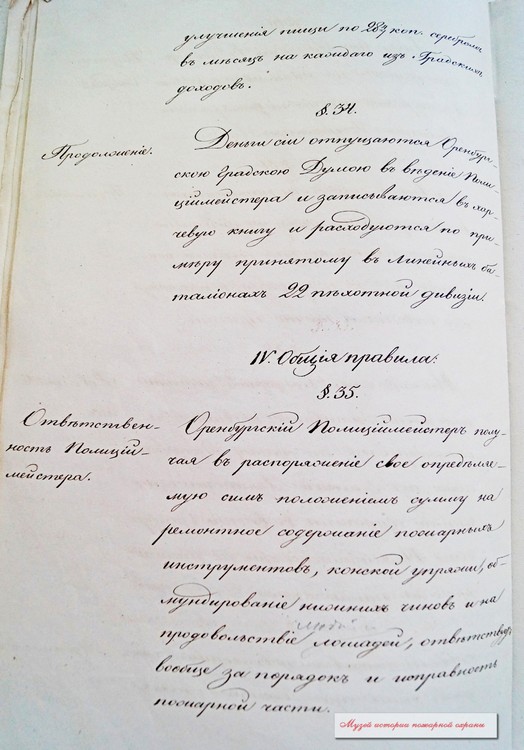 улучшенія пищи по 28¾ коп. серебромъ
въ мѣсяцъ на каждаго изъ Градскихъ
доходовъ.
§. 34.
Продолженіе.
Деньги сіи отпущаются Оренбург-
скою Градскою Думою въ вѣденіе Поли-
ціймейстера и записываются въ хар-
чевую книгу и расходуются по при-
мѣру принятому въ Линейныхъ ба-
таліонахъ 22 пѣхотной дивизіи.
IV. Общія правила:
§. 35.
Отвѣтствен-
ность Полицій-
мейстера.
Оренбургскій Полиціймейстеръ полу-
чая въ распоряженіе свое опредѣляе-
мую симъ положеніемъ сумму на
ремонтное содержаніе пожарныхъ
инструментовъ, конской упряжи, об-
мундированіе нижнихъ чиновъ и на
продовольствіе лошадей, отвѣтствуетъ
вообще за порядокъ и исправность
пожарной части.
Музей истории пожарной охраны